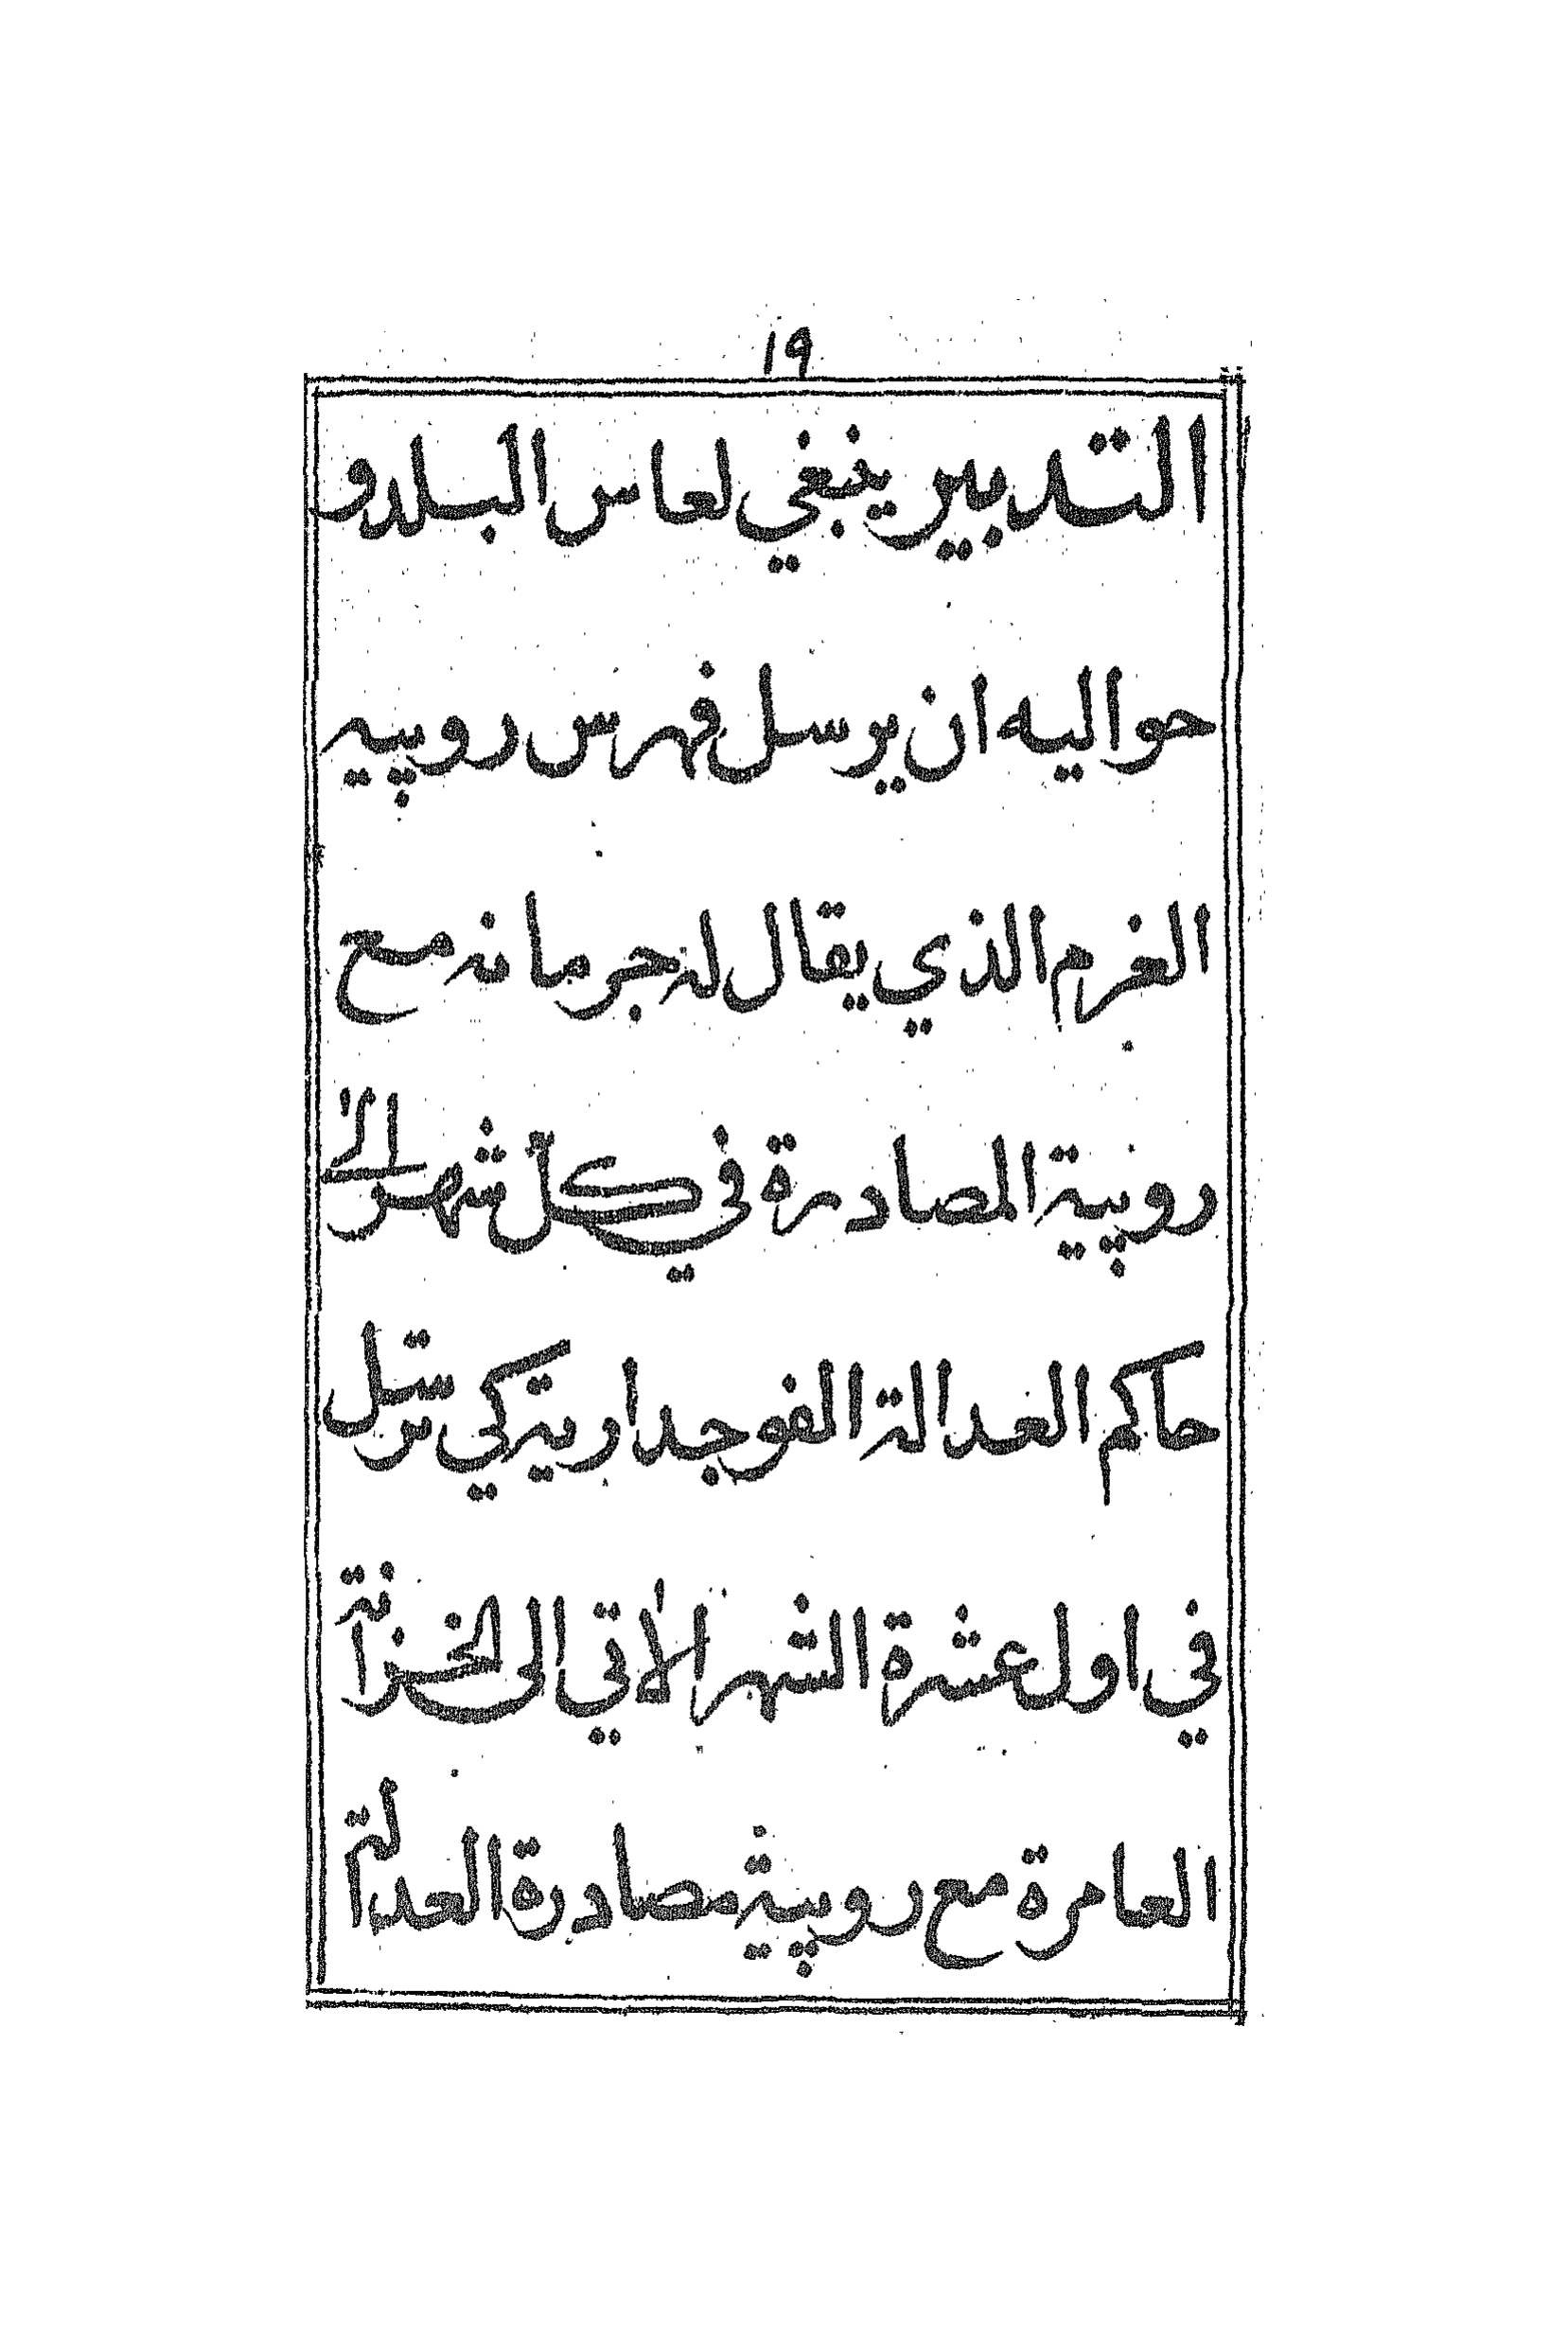 ١٩
التدبير ينبغي لعاس البلد و
حواليه ان يرسل فهرس روپيه
الغرم الذي يقال له جرمانه مع
روپية المصادرة في كلّ شهر الى
حاكم العدالة الفوجدارية كي ترسل
في اول عشرة الشهر الاتي الى الخزانة
العامرة مع روپية مصادرة العدالة